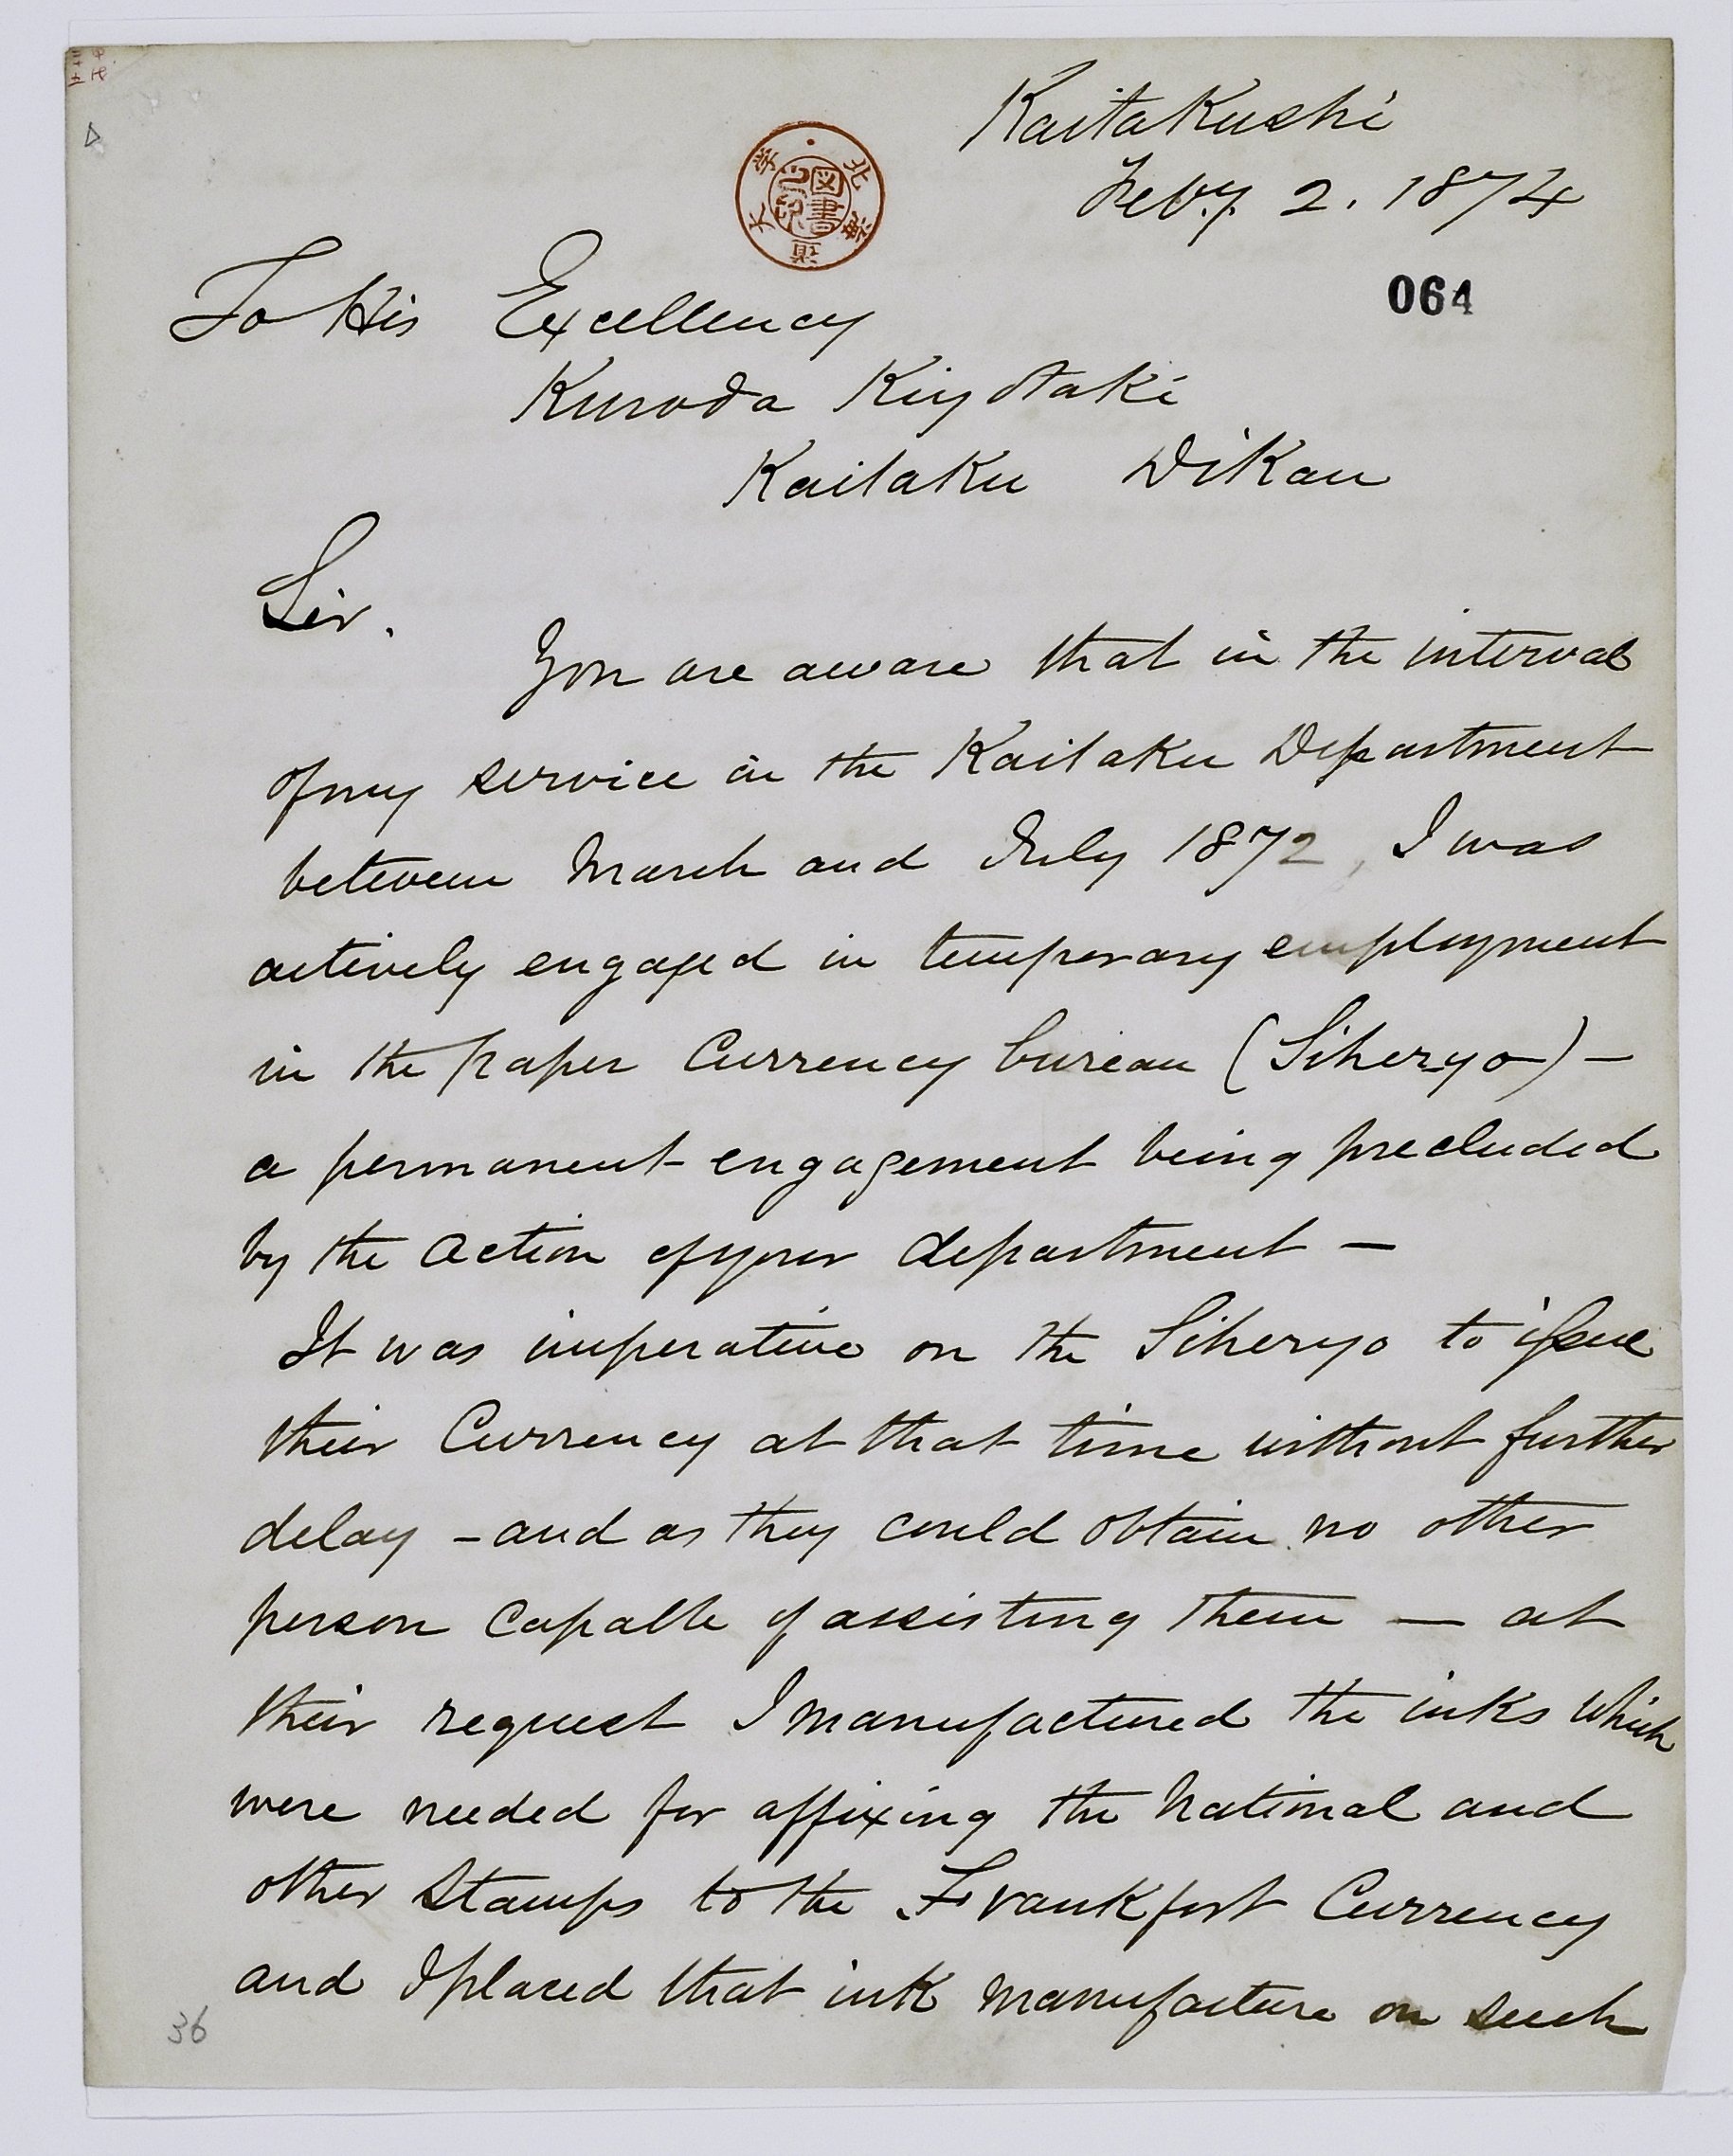 Kaitakushi
Feby. 2. 1874
北海道大学
図書
064
To His Excellency
Kuroda Kiyotaki
Kaitaku Dikan
Sir.
You are aware that in the interval
of my service in the Kaitaku Department
between March and July 1872, I was
actively engaged in temporary employment
in the paper Currency bureau (Siheryo) —
a permanent engagement being precluded
by the action of your department —
It was imperative on the Siheryo to issue
their Currency at that time without further
delay — and as they could obtain no other
person capable of assisting them — at
their request I manufactured the inks which
were needed for affixing the National and
other Stamps to the Frankfort Currency
and I placed that ink manufacture on such
36